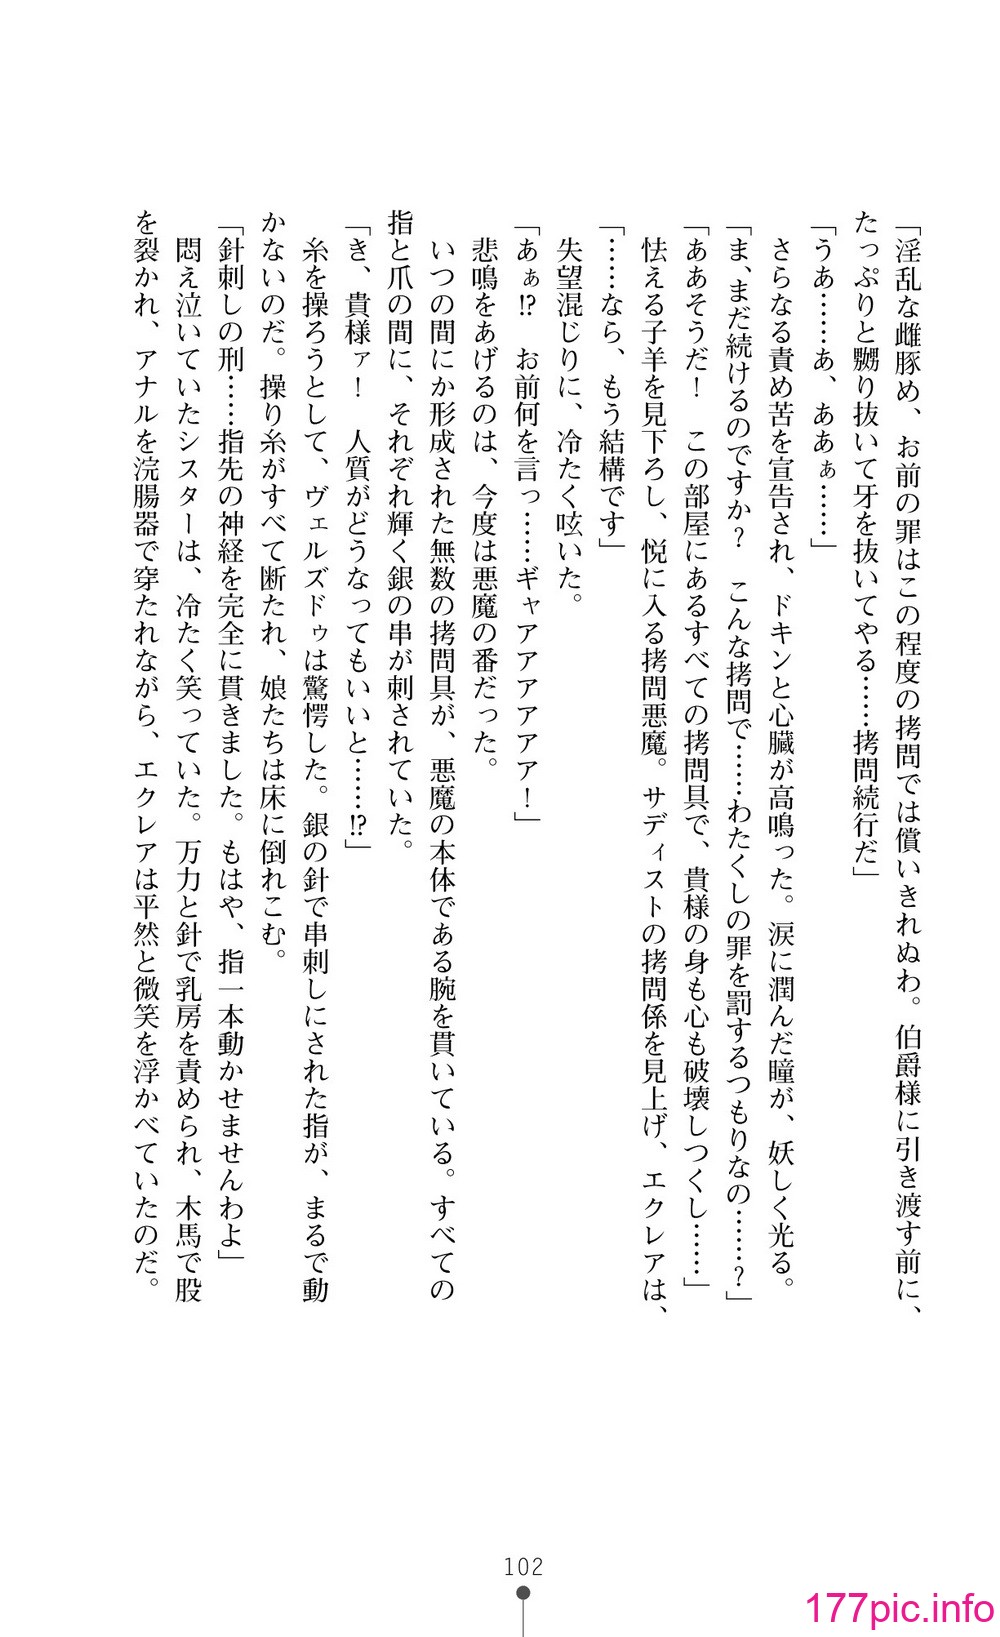 「淫乱な雌豚め、お前の罪はこの程度の拷問では償いきれぬわ。伯爵様に引き渡す前に、
たっぷりと嬲り抜いて牙を抜いてやる……拷問続行だ」
「うあ……あ、ああぁ……」
さらなる責め苦を宣告され、ドキンと心臓が高鳴った。涙に潤んだ瞳が、妖しく光る。
「ま、まだ続けるのですか？　こんな拷問で……わたくしの罪を罰するつもりなの……？」
「ああそうだ！　この部屋にあるすべての拷問具で、貴様の身も心も破壊しつくし……」
怯える子羊を見下ろし、悦に入る拷問悪魔。サディストの拷問係を見上げ、エクレアは、
「……なら、もう結構です」
失望混じりに、冷たく呟いた。
「あぁ!?　お前何を言っ……ギャアアアアアア！」
悲鳴をあげるのは、今度は悪魔の番だった。
いつの間にか形成された無数の拷問具が、悪魔の本体である腕を貫いている。すべての
指と爪の間に、それぞれ輝く銀の串が刺されていた。
「き、貴様ァ！　人質がどうなってもいいと……!?」
糸を操ろうとして、ヴェルズドゥは驚愕した。銀の針で串刺しにされた指が、まるで動
かないのだ。操り糸がすべて断たれ、娘たちは床に倒れこむ。
「針刺しの刑……指先の神経を完全に貫きました。もはや、指一本動かせませんわよ」
悶え泣いていたシスターは、冷たく笑っていた。万力と針で乳房を責められ、木馬で股
を裂かれ、アナルを浣腸器で穿たれながら、エクレアは平然と微笑を浮かべていたのだ。
102
177pic.info